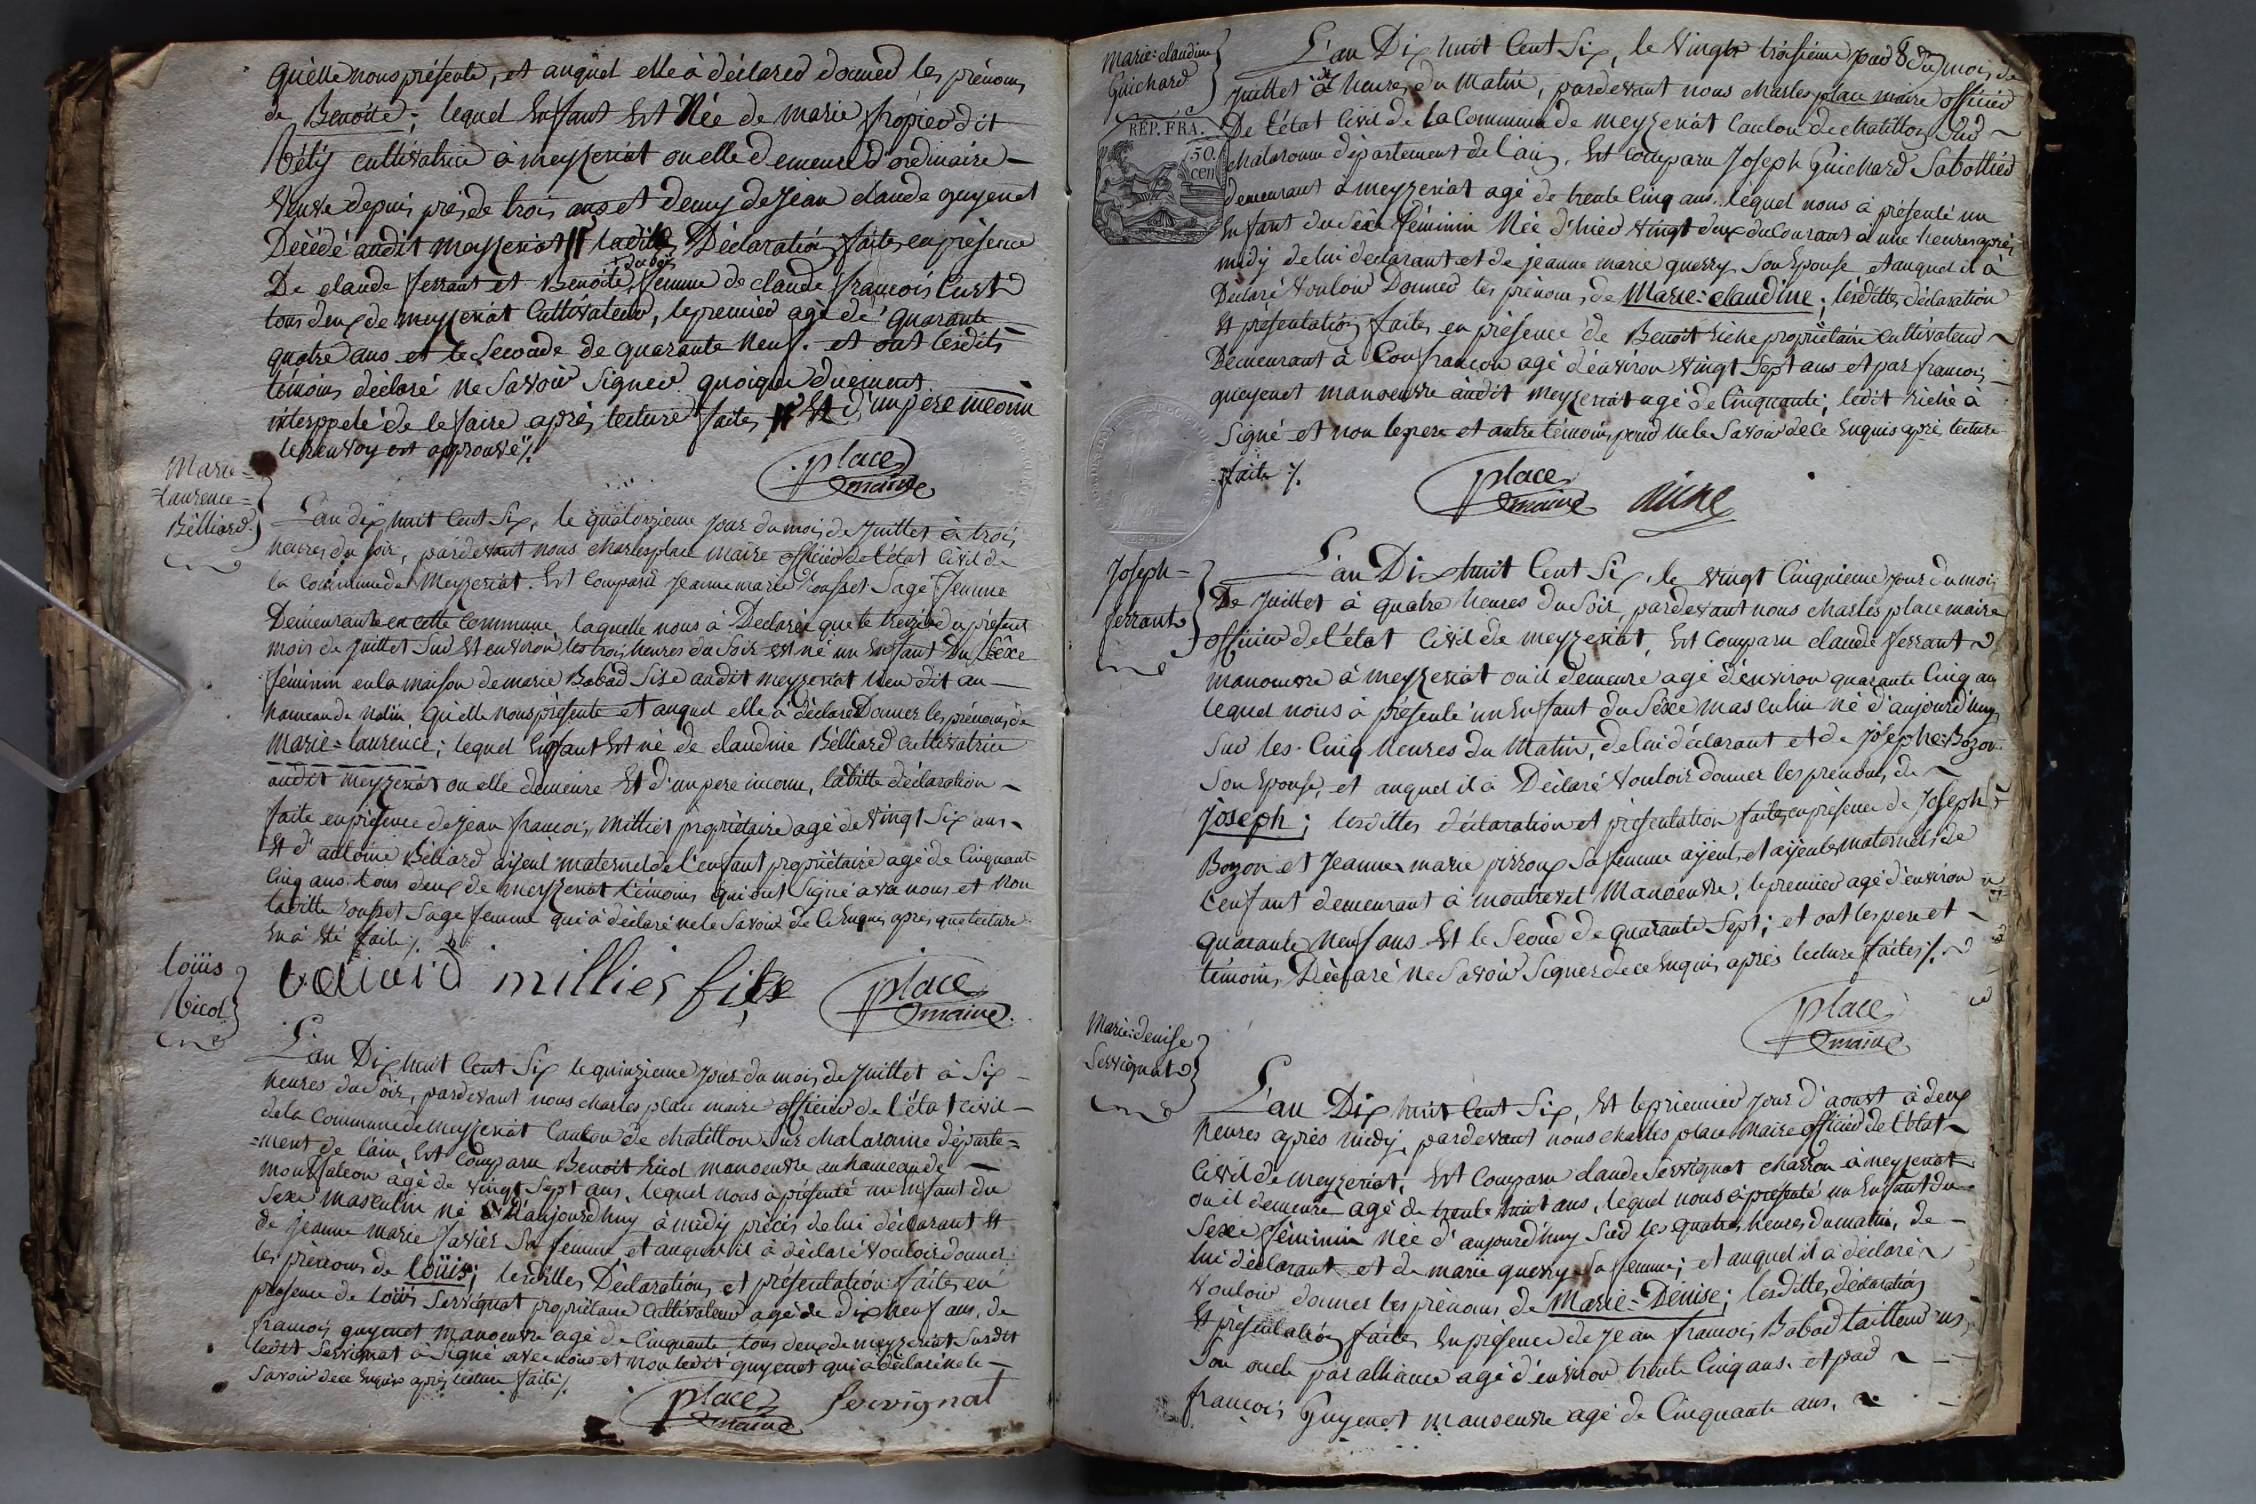 qu'elle nous présente, et auquel elle à déclared donned les prénoms
de Benoîte; lequel Enfant Est Née de marie
cultivatrice à meyzeriat ou elle demeure d'ordinaire
veuve depuis près de trois ans et demy de Jean claude guyenet
Décédé audit meyzeriat ladite Déclaration faite en présence
De claude ferrant et Benoite femme de claude françois
tous deux de meyzeriat Cultivateurs, le premier agé de quarante
quatre ans et le Seconde de quarante Neuf. et ont lesdits
témoins déclaré Ne Savoir Signer quoique duement
interppelé de le faire après lecture faite Est d'un père inconnu
le renvoy est approuvé ./.
place
maire
Marie=
=Laurence=
Bélliard
L'an dix huit Cent Six, le quatorzieme jour du mois de Juillet à trois
heures du soir, pardevant nous charles place maire officier de l'état Civil de
la Commune de Meyzeriat. Est Comparu Jeanne marie Sage femme
Demeurante en cette Commune laquelle nous à Declarée que le treize du présent
mois de Juillet Sur Et environ les trois heures du Soir est né un Enfant Du Séxe
féminin en la maison de marie Babad Sise audit meyzeriat lieu dit au
hameau de Qu'elle nous présente et auquel elle à déclaré Donner les prénoms de
marie=laurence; lequel Enfant Est né de claudine Bélliard Cultivatrice
audit meyzeriat ou elle demeure Et d'un pere inconnu, laditte déclaration
faite en présence de Jean francois Milliet propriétaire agé de vingt Six ans
Et d'antoine Béliard aÿeul maternel de l'enfant propriétaire agé de Cinquant
Cinq ans. tous deux de meyzeriat témoins qui ont Signé avec nous et Non
laditte Sage femme qui à déclaré ne le Savoir de Ce Enquis après que lecture
En à été faite ./.
milliet fils place
maire
loüis
Ricol
L'an Dix huit Cent Six le quinzieme Jour du mois de Juillet à Six
heures du Soir, pardevant nous charles place maire officier de l'état civil
de la Commune de Meyzeriat Canton de chatillon Sur chalaronne départe=
=ment de l'ain, Est Comparu Benoit Ricol manoeuvre au hameau de
montfalcon âgé de vingt Sept ans, lequel nous à présenté un Enfant du
Sexe masculin né d'aujourdhuy à midy précis de lui déclarant Et
de Jeanne marie Javier Sa femme et auquel il à déclaré vouloir donner
les prénoms de loüis; lesdittes Déclaration et présentation faites en
présence de loüis Servignat propriétaire Cultivateur agé de dix neuf ans, de
francois guyenet manoeuvre agé de Cinquante tous deux de meyzeriat Susdit
ledit Servignat à Signé avec nous et non ledit guyenet qui à déclaré ne le
Savoir de ce Enquis après lecture faite ./.
place
maire servignat
marie=claudine
Guichard
REP. FRA.
50.
cen
L'an Dix huit Cent Six, le vingt troisieme jour du mois de
Juillet à heures du Matin, pardevant nous charles place maire officier
De l'état Civil de la Commune de meyzeriat Canton de chatillon Sur
chalaronne département de l'ain, Est Comparu Joseph Guichard Sabottier
demeurant à meyzeriat agé de trente Cinq ans. lequel nous à présenté un
Enfant du Séxe féminin Née d'hier vingt deux du Courant à une heure après
midy de lui declarant et de jeanne marie guerry Son Epouse, et auquel il à
Declaré vouloir Donner les prénoms de Marie=claudine; lesdittes déclaration
Et présentation faites en présence de Benoit Riche propriétaire Cultivateur
Demeurant à Confrançon agé d'environ vingt Sept ans et par francois
gueyenet manoeuvre audit Meyzeriat agé de Cinquante; ledit Riche à
Signé et non le pere et autre témoins pour Ne le Savoir de Ce Enquis après lecture
faite ./.
place
maire Riche
Joseph=
ferrant
L'an Dix huit Cent Six, le vingt Cinquieme jour du mois
De Juillet à quatre heures du Soir, pardevant nous charles place maire
officier de l'état Civil de meyzeriat, Est Comparu claude ferrant
manoeuvre à meyzeriat ou il demeure agé d'environ quarante Cinq ans
lequel nous à présenté un Enfant du Séxe masculin né d'aujourd'huy
Sur les Cinq heures du Matin, de lui déclarant et de Josephe Bozon
Son Epouse, et auquel il à Déclaré vouloir donner les prenoms de
Joseph; lesdittes déclaration et présentation faites en présence de Joseph
Bozon et Jeanne marie pirroux Sa femme aÿeul et aÿeule maternels de
l'enfant demeurant à montrevel Manoeuvre, le premier agé d'environ
quarante Neuf ans Et le Seconde de quarante Sept; et ont les pere et
témoins Déclaré Ne Savoir Signer de ce Enquis après lecture faites ./.
place
maire
Marie=denise
Servignat
L'an Dix huit Cent Six, Et le premier jour d'aoust à deux
heures après midy, pardevant nous charles place Maire officier de l'état
Civil de Meyzeriat, Est Comparu claude Servignat charron à meyzeriat
ou il demeure agé de trente huit ans, lequel nous à présenté un Enfant du
Sexe féminin Née d'aujourd'huy Sur les quatre heures du matin, de
lui déclarant et de marie guerry Sa femme; et auquel il à déclaré
vouloir donner les prénoms de Marie=Denise; lesdittes déclaration
Et présentation faites En présence de Jean francois Babad tailleur
Son oncle par alliance agé d'environ trente Cinq ans. et par
francois Guyenet manoeuvre agé de Cinquante ans.